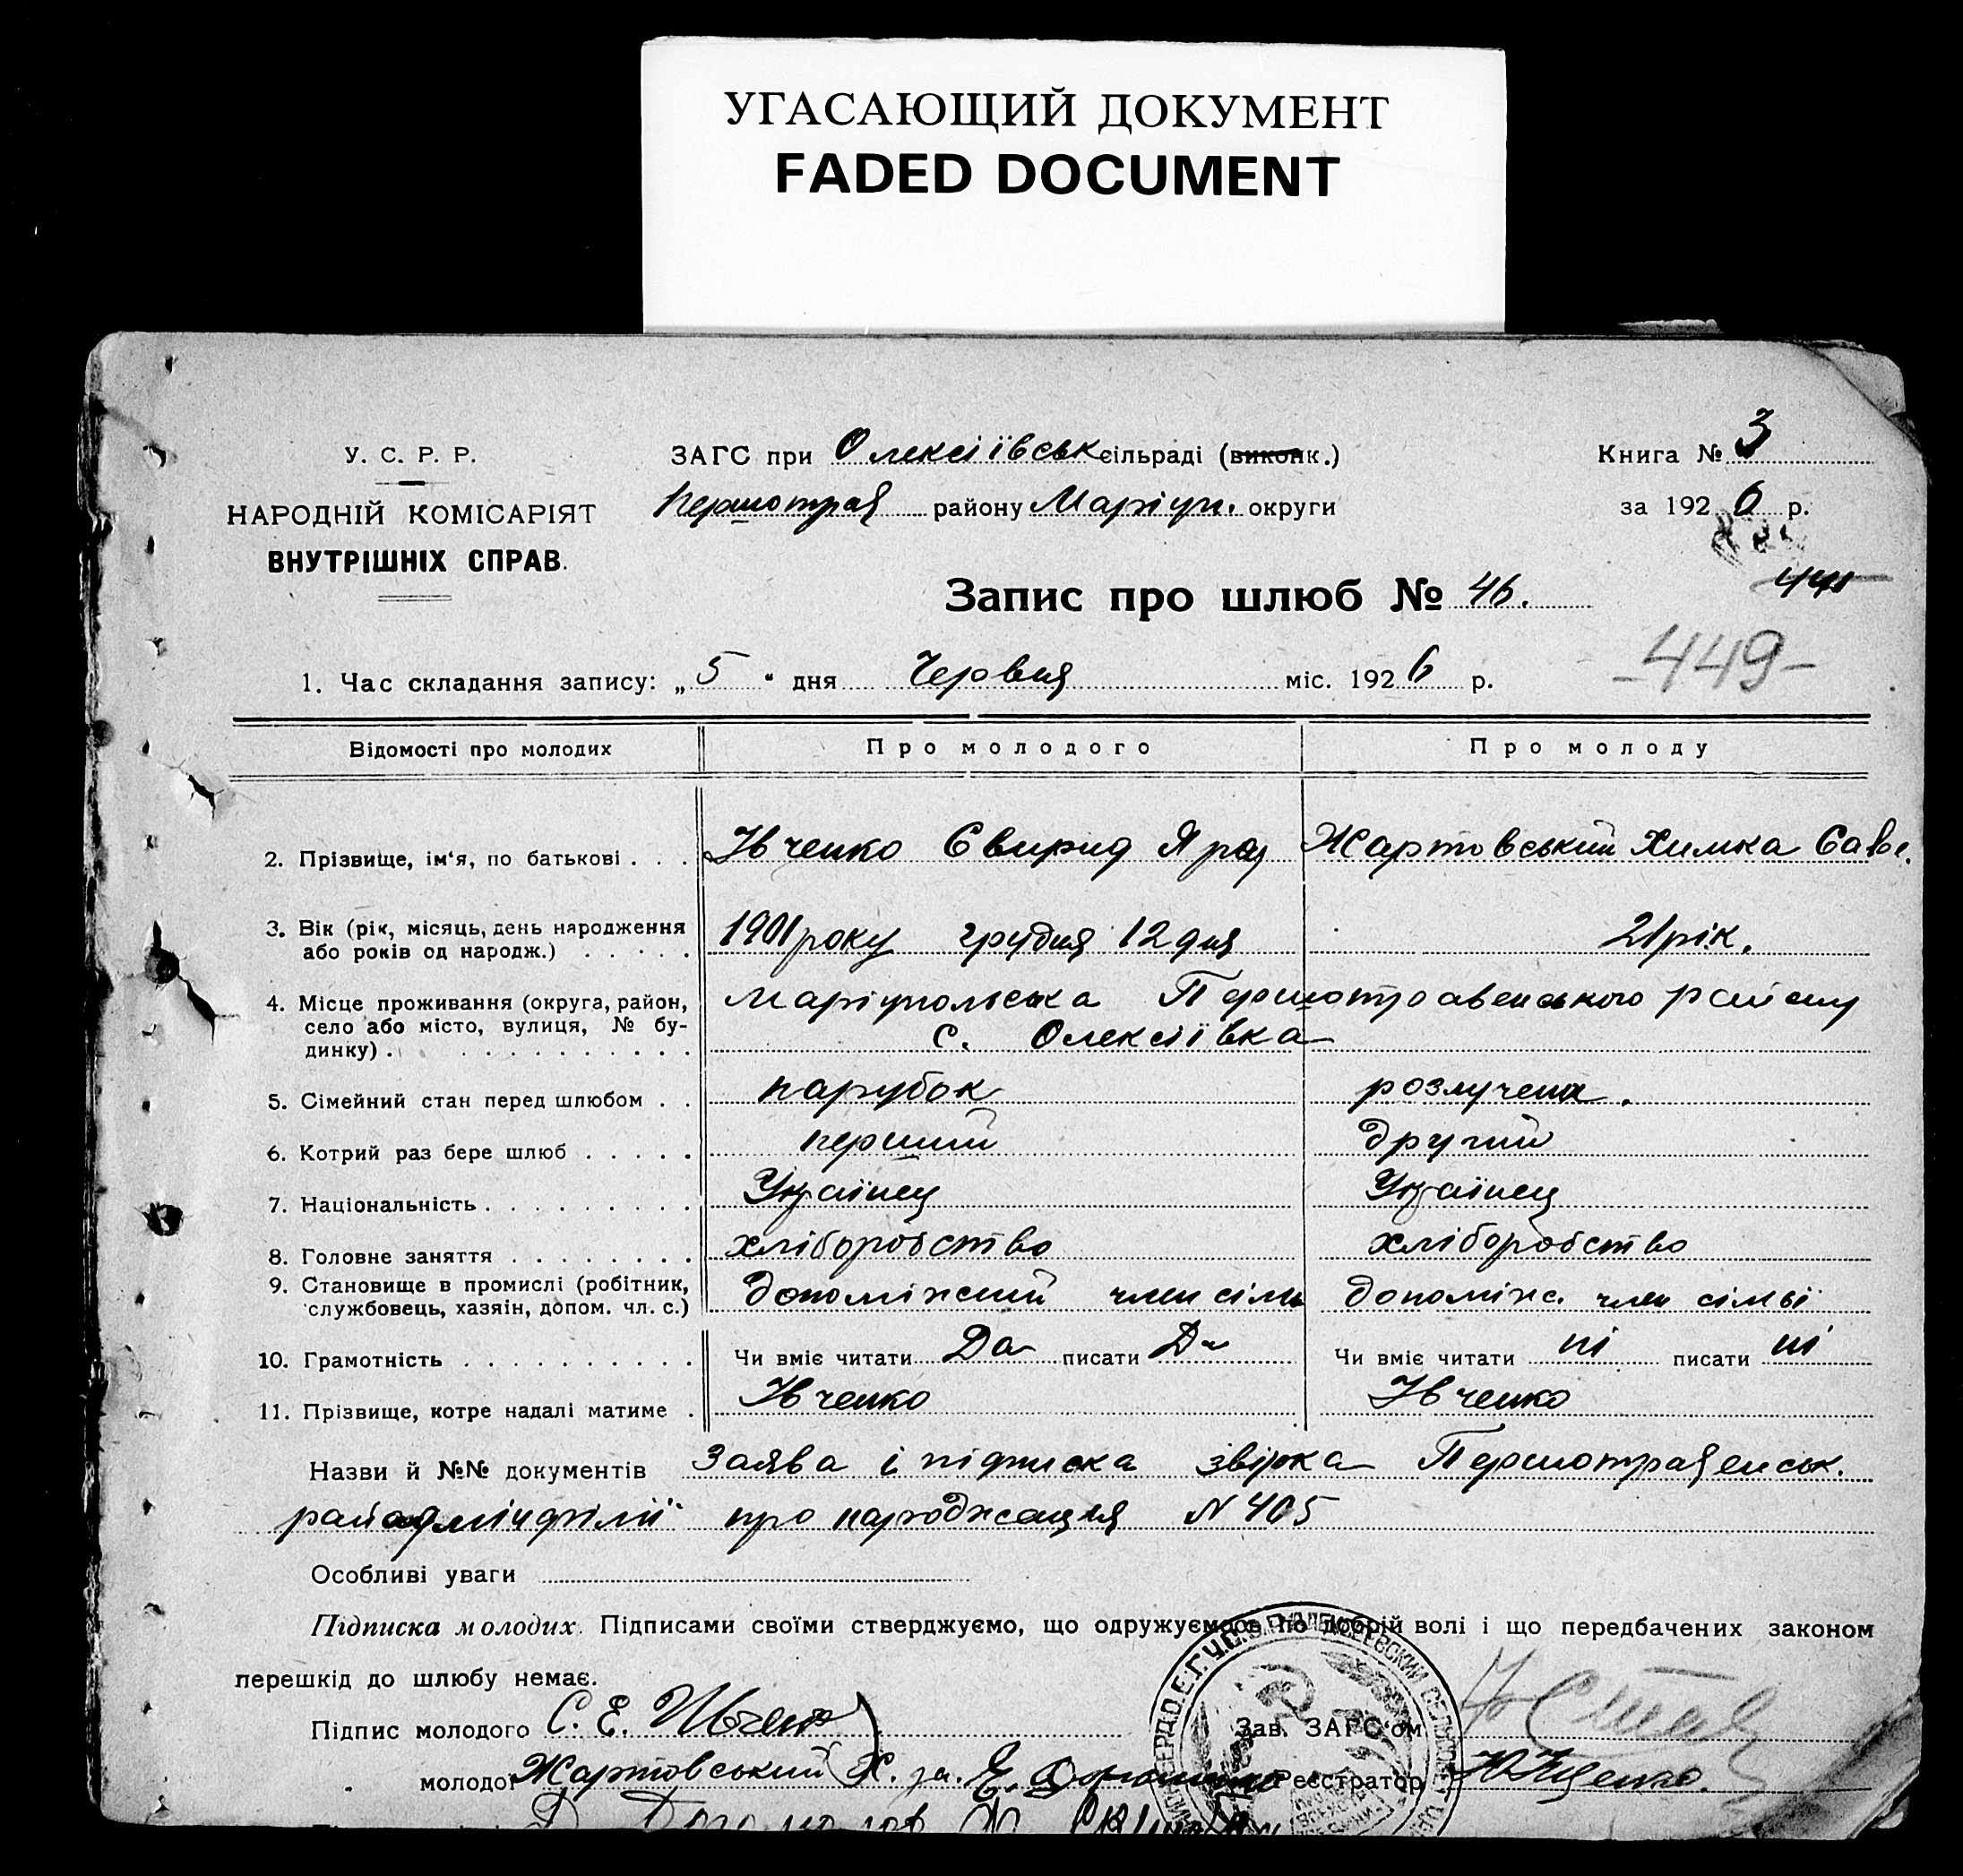 УГАСАЮЩИЙ ДОКУМЕНТ
FADED DOCUMENT
У. С. Р. Р.
НАРОДНІЙ КОМІСАРІЯТ
ВНУТРІШНІХ СПРАВ.
ЗАГС при Олексіївськ сільраді (виконк.)
Першотрав району Маріуп. округи
Книга № 3
за 1926 р.
Запис про шлюб № 46.
449
1. Час складання запису: „5" дня Червня міс. 1926 р.
Відомості про молодих Про молодого Про молоду
2. Прізвище, ім'я, по батькові . . . Івченко Свирид Жартовський Химка Сав.
3. Вік (рік, місяць, день народження або років од народж.) . . . . . 1901 року грудня 12 дня 21 рік.
4. Місце проживання (округа, район, село або місто, вулиця, № будинку) . Маріупольська Першотравенського району
с. Олексіївка
5. Сімейний стан перед шлюбом . . парубок розлучена.
6. Котрий раз бере шлюб . . . . . перший другий
7. Національність . . . . . . . . . Українец Українец
8. Головне заняття . . . . . . . . хліборобство хліборобство
9. Становище в промислі (робітник, службовець, хазяін, допом. чл. с.) допоміжний член сімьи допоміж. член сімьї
10. Грамотність . . . . . . . . . . Чи вміє читати Да писати Да Чи вміє читати ні писати ні
11. Прізвище, котре надалі матиме . Івченко Івченко
Назви й №№ документів Заява і підписка звірка Першотравенськ.
райадмінчфілії про народження N 405
Особливі уваги
Підписка молодих. Підписами своїми стверджуємо, що одружуємося по добрій волі і що передбачених законом
перешкід до шлюбу немає.
Підпис молодого С. Е. Ивченко Зав. ЗАГС'ом
молодої Жартовський Х. за. Е. Реєстратор Ищенко.